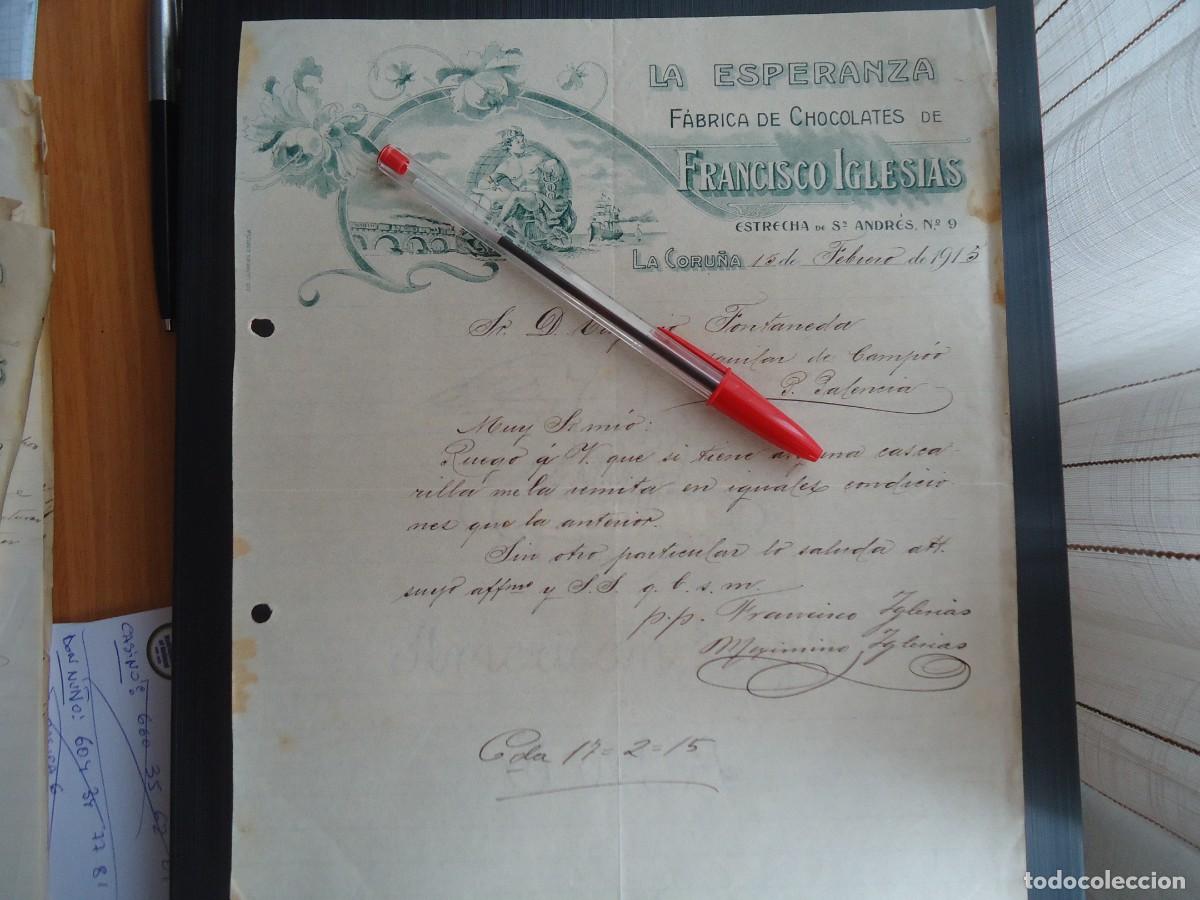 LA ESPERANZA
FÁBRICA DE CHOCOLATES DE
FRANCISCO IGLESIAS
ESTRECHA DE Sn ANDRÉS, No 9
LA CORUÑA 15 de Febrero de 1915
Sr. D. Fontaneda
aguilar de Campóo
P. Palencia
Muy Sr mio:
Ruego á V. que si tiene alguna casca-
rilla me la remita en iguales condicio-
nes que la anterior.
Sin otro particular lo saluda att.
suyo affmo y S.S. q. b. s. m.
p.p. Francisco Iglesias
Iglesias
Cda 17=2=15
CASINO: 660 35 62
DON NUÑO: 604 77 81
todocoleccion